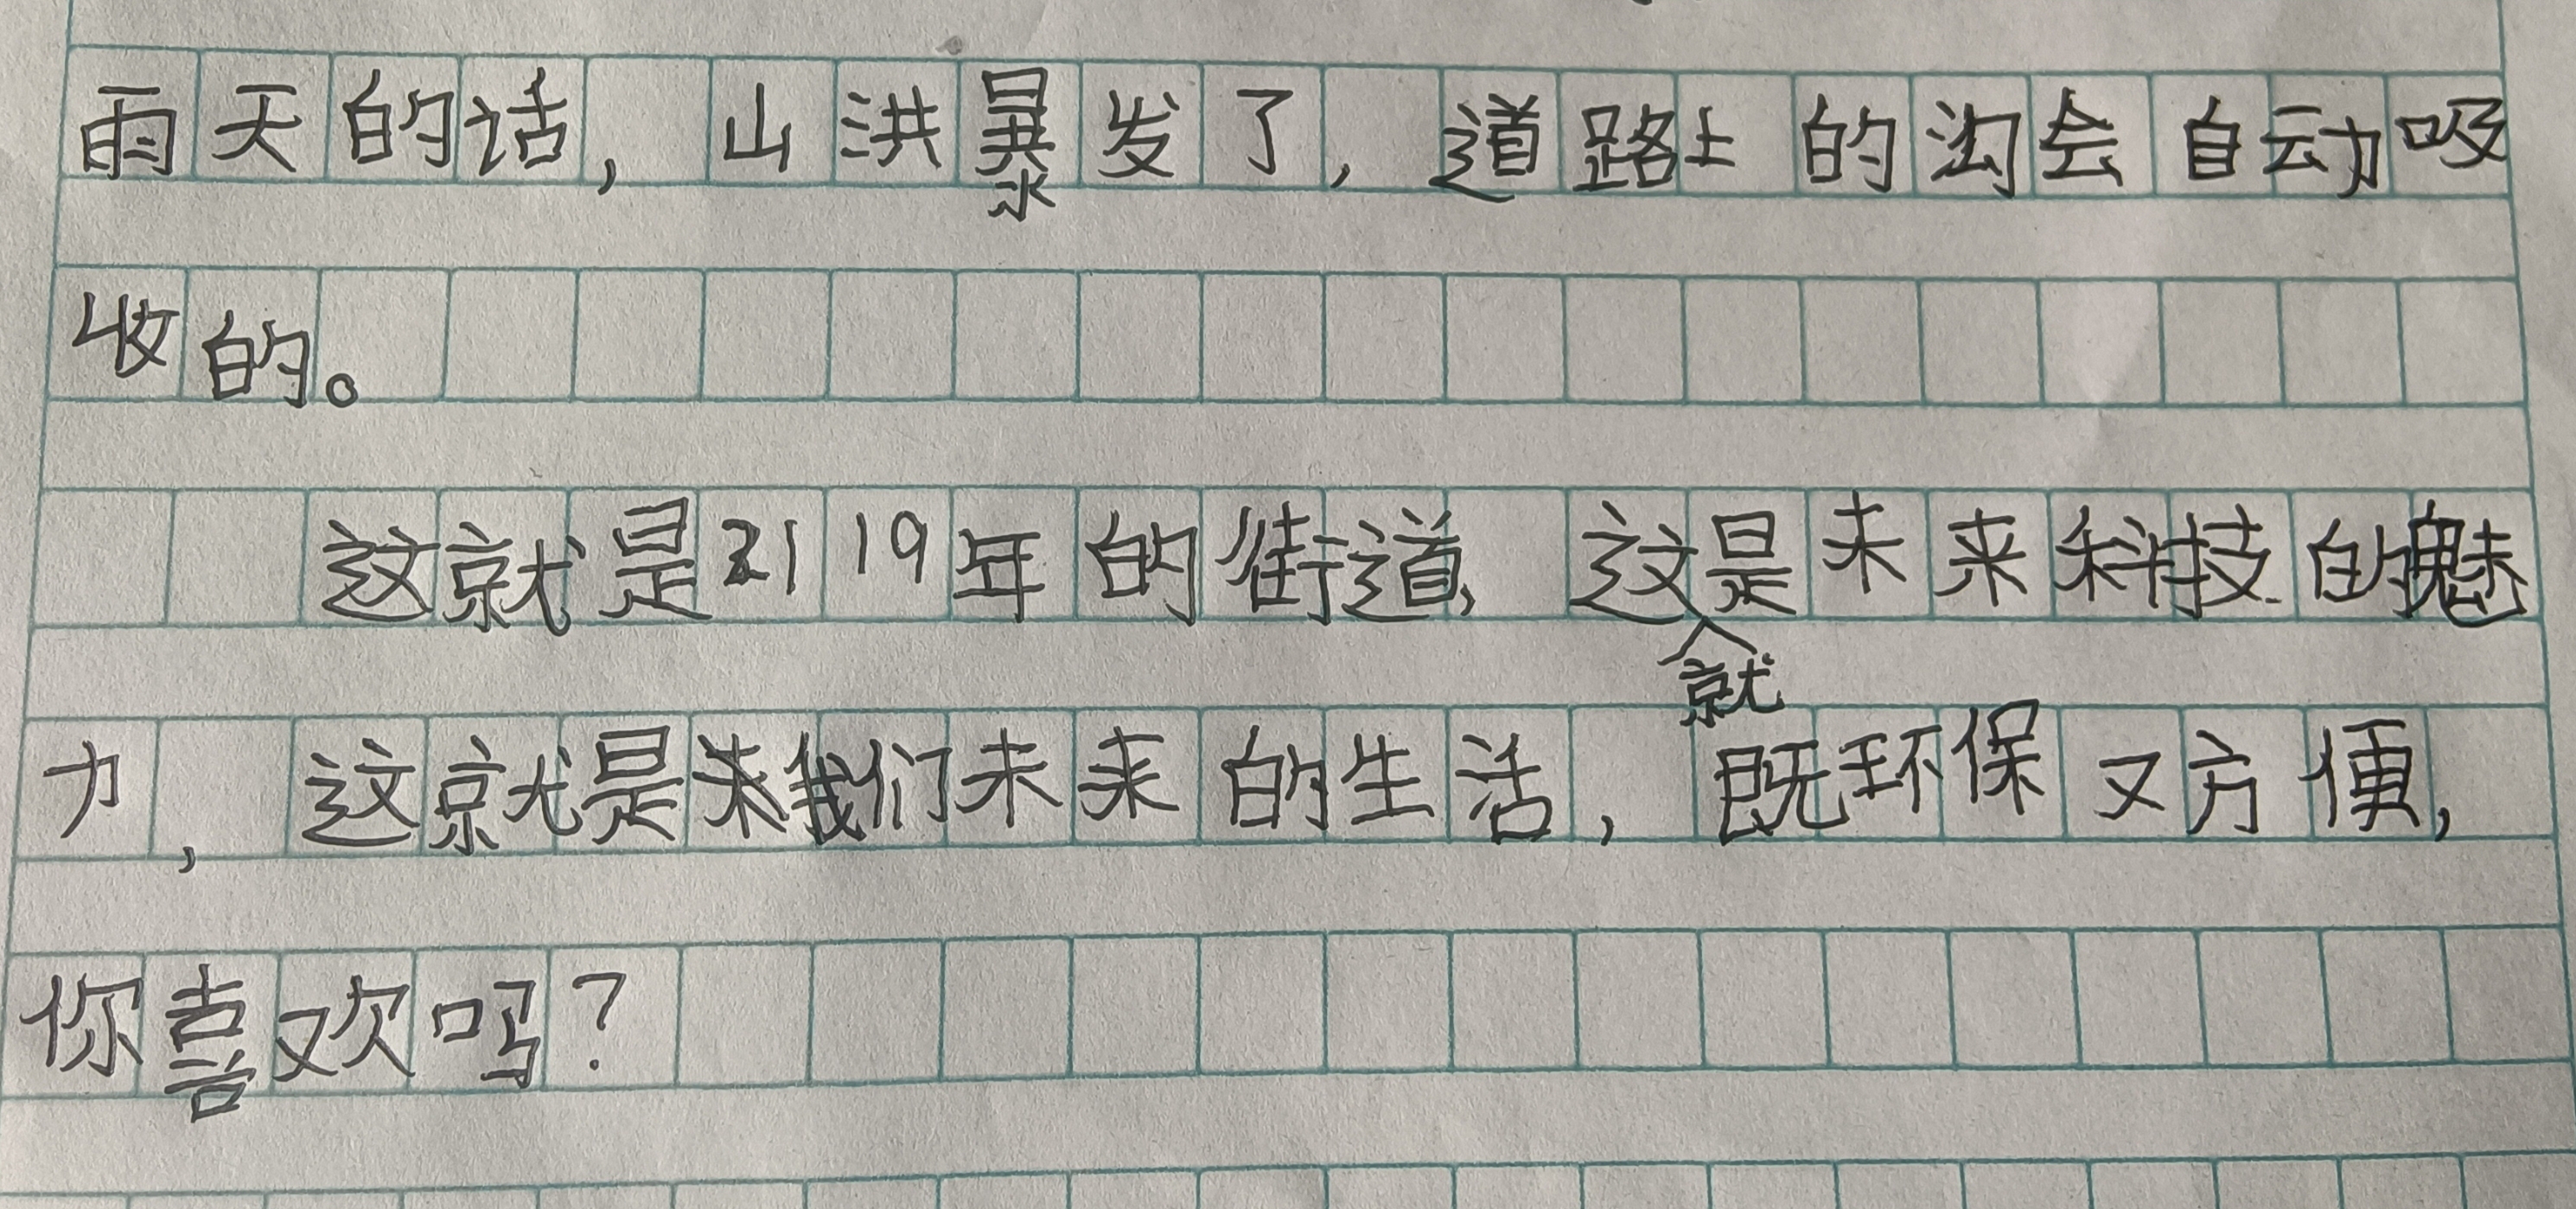 雨天的话，山洪暴发了，道路上的沟会自动吸
收的。
这就是2119年的街道，这就是未来科技的魅
力，这就是我们未来的生活，既环保又方便，
你喜欢吗？